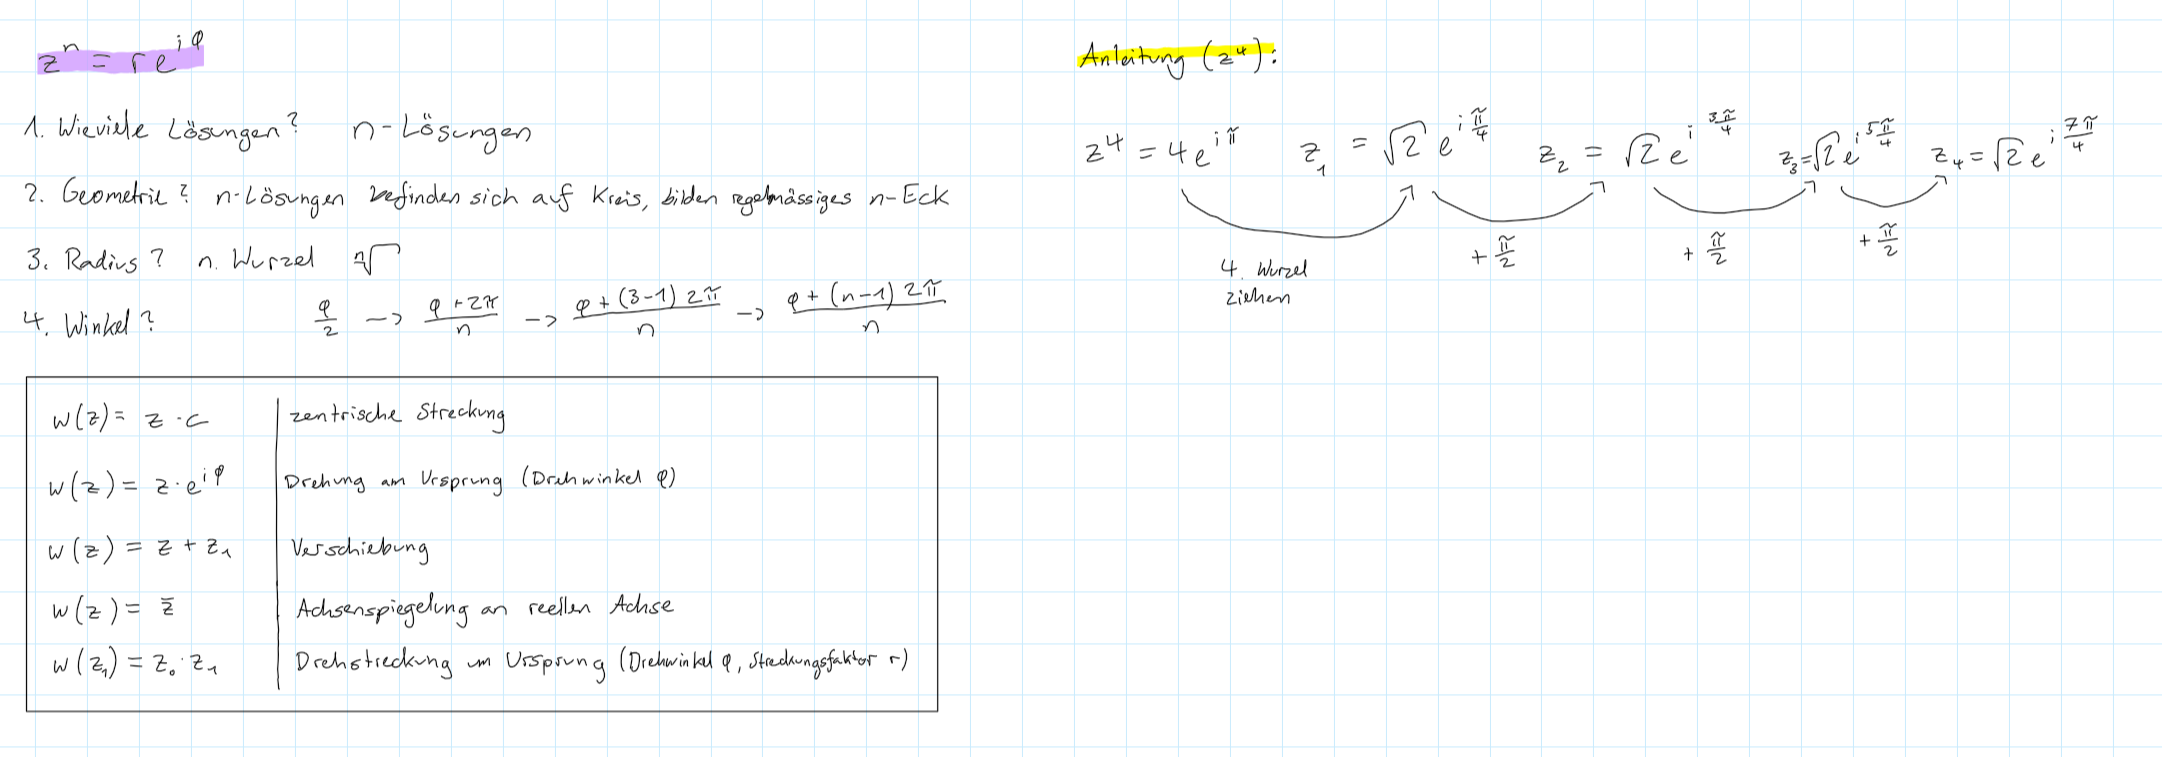 zⁿ = r e^{iφ}
1. Wieviele Lösungen? n-Lösungen
2. Geometrie? n-Lösungen befinden sich auf Kreis, bilden regelmässiges n-Eck
3. Radius? n. Wurzel ⁿ√
4. Winkel? φ/2 -> (φ+2π)/n -> (φ+(3-1)2π)/n -> (φ+(n-1)2π)/n
w(z) = z · c zentrische Streckung
w(z) = z · e^{iφ} Drehung am Ursprung (Drehwinkel φ)
w(z) = z + z₁ Verschiebung
w(z) = z̄ Achsenspiegelung an reellen Achse
w(z₁) = z₀ · z₁ Drehstreckung um Ursprung (Drehwinkel φ, Streckungsfaktor r)
Anleitung (z⁴):
z⁴ = 4e^{iπ} z₁ = √2 e^{iπ/4} z₂ = √2 e^{i3π/4} z₃ = √2 e^{i5π/4} z₄ = √2 e^{i7π/4}
+ π/2 + π/2 + π/2
4. Wurzel
ziehen